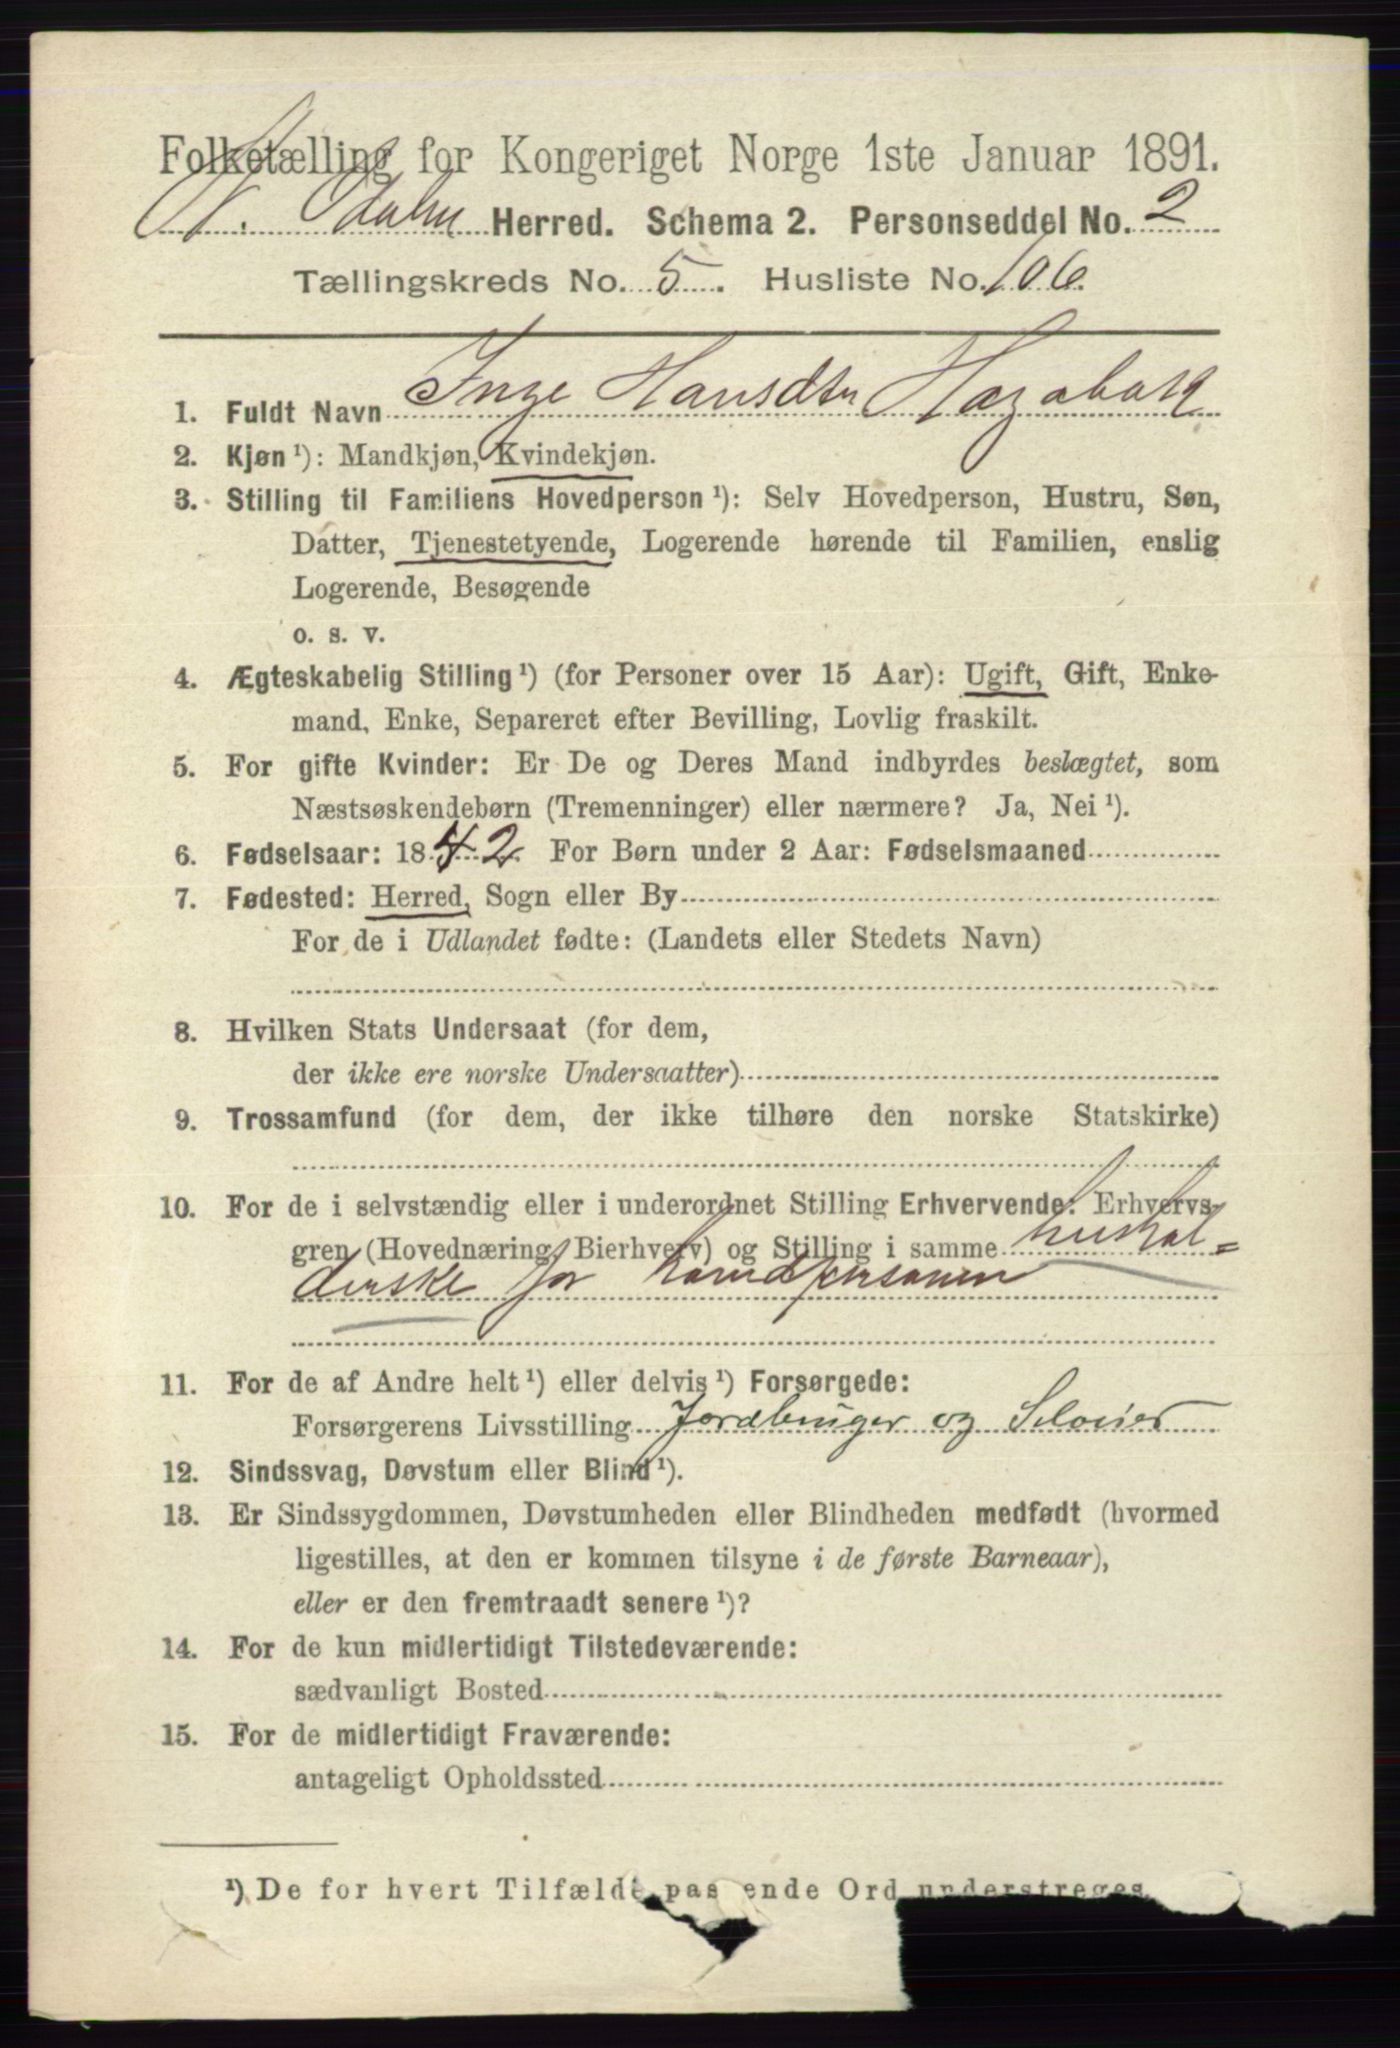 Folketælling for Kongeriget Norge 1ste Januar 1891.
N. Herred. Schema 2. Personseddel No. 2
Tællingskreds No. 5. Husliste No. 106.
1. Fuldt Navn Inge Hansdtr
2. Kjøn ¹): Mandkjøn, Kvindekjøn.
3. Stilling til Familiens Hovedperson ¹): Selv Hovedperson, Hustru, Søn,
Datter, Tjenestetyende, Logerende hørende til Familien, enslig
Logerende, Besøgende
o. s. v.
4. Ægteskabelig Stilling ¹) (for Personer over 15 Aar): Ugift, Gift, Enke-
mand, Enke, Separeret efter Bevilling, Lovlig fraskilt.
5. For gifte Kvinder: Er De og Deres Mand indbyrdes beslægtet, som
Næstsøskendebørn (Tremenninger) eller nærmere? Ja, Nei ¹).
6. Fødselsaar: 1842. For Børn under 2 Aar: Fødselsmaaned
7. Fødested: Herred, Sogn eller By
For de i Udlandet fødte: (Landets eller Stedets Navn)
8. Hvilken Stats Undersaat (for dem,
der ikke ere norske Undersaatter)
9. Trossamfund (for dem, der ikke tilhøre den norske Statskirke)
10. For de i selvstændig eller i underordnet Stilling Erhvervende: Erhvervs-
gren (Hovednæring, Bierhverv) og Stilling i samme hushol-
derske for
11. For de af Andre helt ¹) eller delvis ¹) Forsørgede:
Forsørgerens Livsstilling Jordbruger og Seloeier
12. Sindssvag, Døvstum eller Blind ¹).
13. Er Sindssygdommen, Døvstumheden eller Blindheden medfødt (hvormed
ligestilles, at den er kommen tilsyne i de første Barneaar),
eller er den fremtraadt senere ¹)?
14. For de kun midlertidigt Tilstedeværende:
sædvanligt Bosted
15. For de midlertidigt Fraværende:
antageligt Opholdssted
¹) De for hvert Tilfælde pas ende Ord understreges